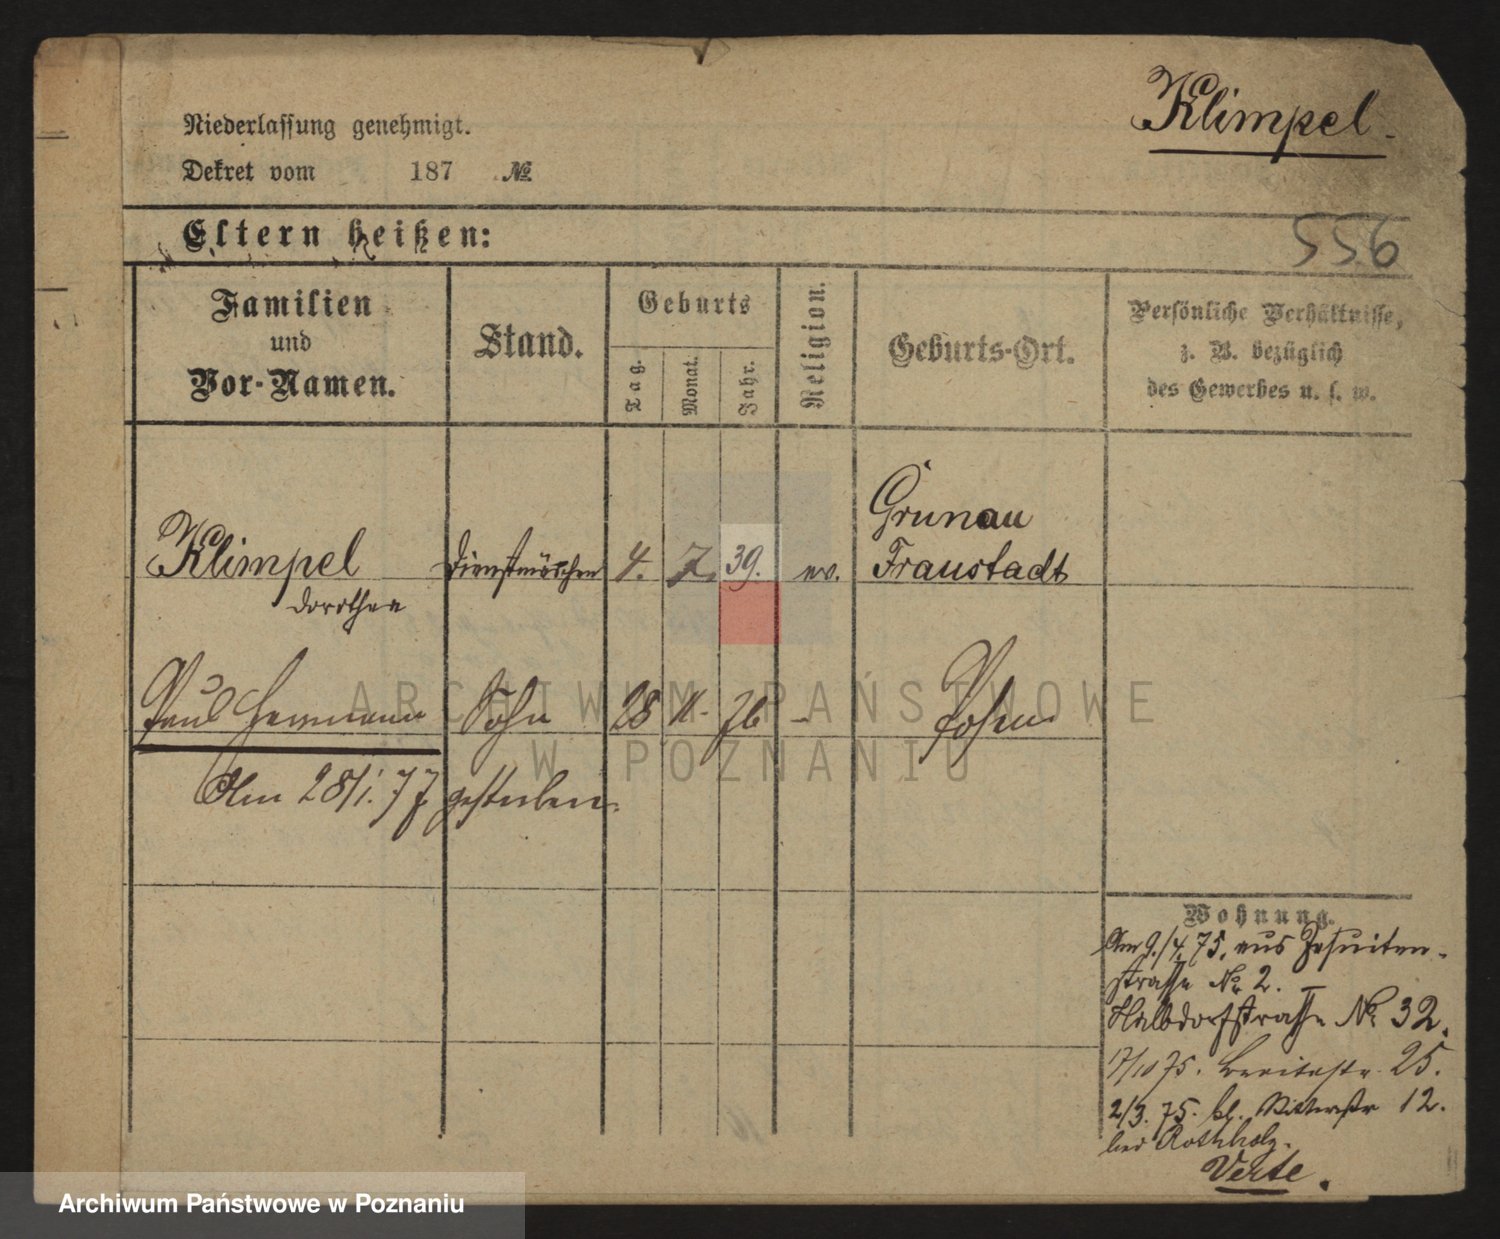 Klimpel.
Niederlassung genehmigt.
Dekret vom 187 №
Eltern heißen:
556
Familien und Vor-Namen.
Stand.
Geburts
Tag.
Monat.
Jahr.
Religion.
Geburts-Ort.
Persönliche Verhältnisse,
z. B. bezüglich
des Gewerbes u. s. w.
Grunau
Klimpel Dienstmädchen 4. 7. 39. ev. Fraustadt
Dorothea
Paul Hermann Sohn 28 11. 76 - Posen
Am 28/1. 77 gestorben.
ARCHIWUM PAŃSTWOWE
W POZNANIU
Wohnung.
Am 9./4. 75. aus Jesuiten-
strasse № 2. -
Halbdorfstrasse № 32.
17/10 75. Breitestr. 25.
2/3. 75. kl. Ritterstr 12.
bei Rothholz.
Verte.
Archiwum Państwowe w Poznaniu